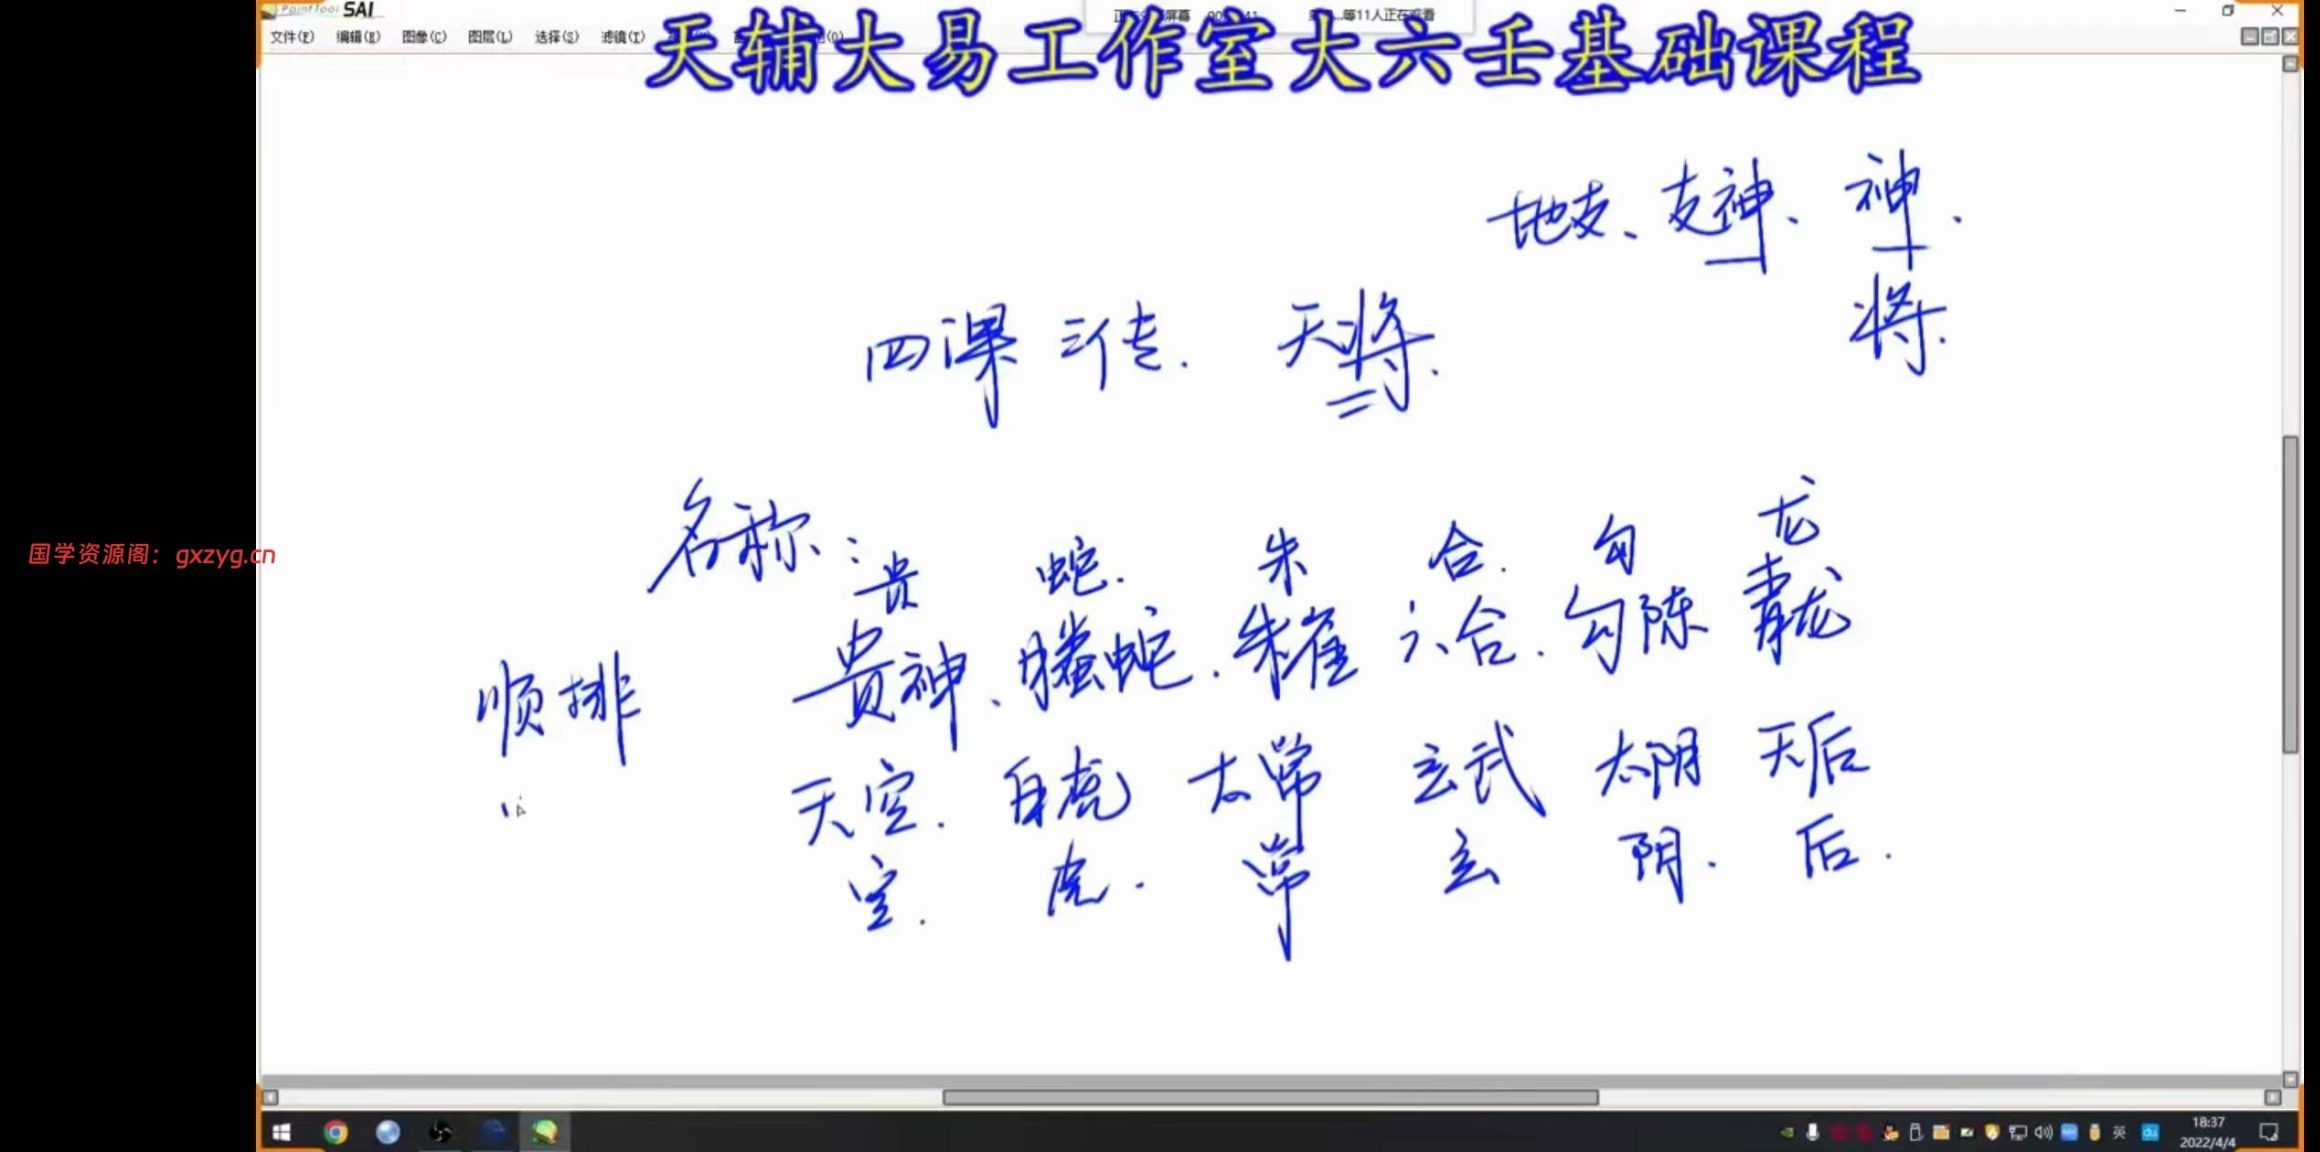 PaintTool SAI
文件(F) 编辑(E) 图像(C) 图层(L) 选择(S) 滤镜(T)
等11人正在观看
天辅大易工作室大六壬基础课程
地支、支神、神.
将.
四课 三传. 天将.
名称:
贵 蛇. 朱 合. 勾 龙
顺排 贵神、螣蛇. 朱雀 六合. 勾陈 青龙
天空. 白虎 太常 玄武 太阴 天后
空. 虎. 常 玄 阴. 后.
国学资源阁：gxzyg.cn
英
18:37
2022/4/4